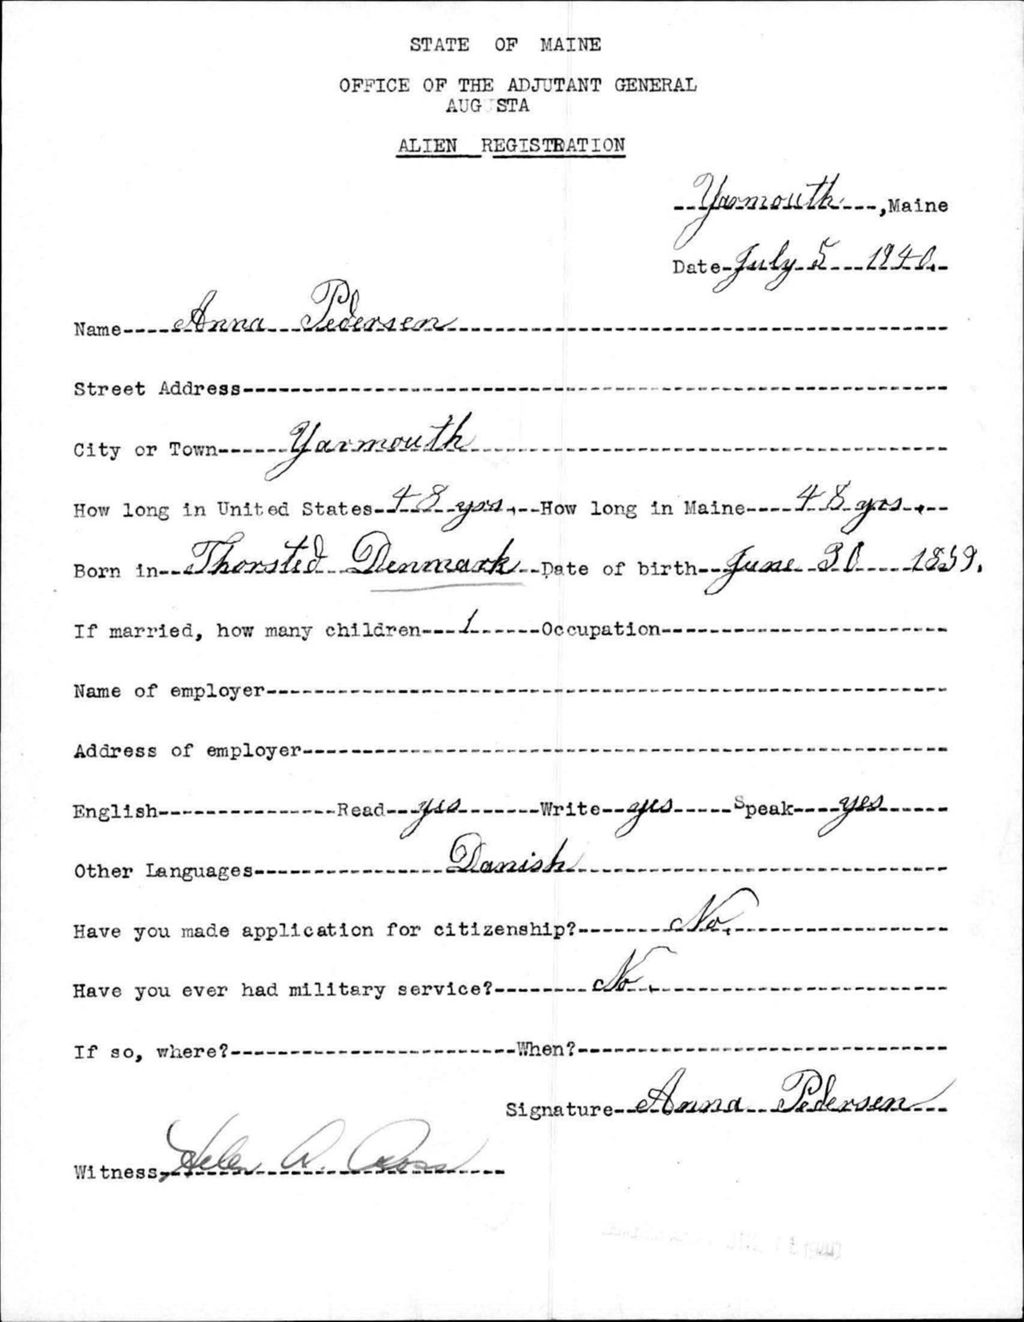 STATE OF MAINE
OFFICE OF THE ADJUTANT GENERAL
AUGUSTA
ALIEN REGISTRATION
Yarmouth, Maine
Date July 5 1940.
Name Anna Pedersen
Street Address
City or Town Yarmouth
How long in United States 48 yrs. How long in Maine 48 yrs.
Born in Thorsted Denmark Date of birth June 30 1859.
If married, how many children 1 Occupation
Name of employer
Address of employer
English Read yes Write yes Speak yes
Other Languages Danish
Have you made application for citizenship? No.
Have you ever had military service? No.
If so, where? When?
Signature Anna Pedersen
Witness Helen A. Ross